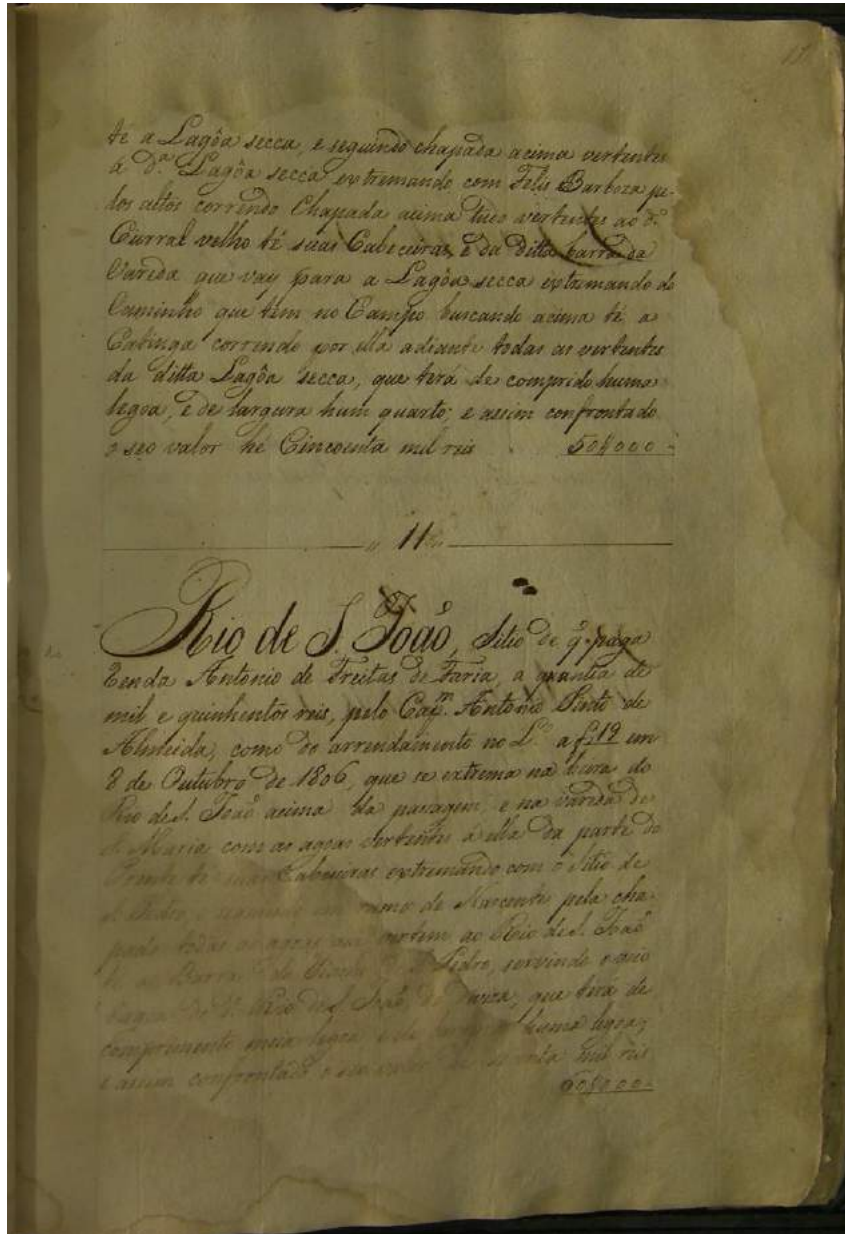 té a Lagôa secca, e seguindo chapada acima vertentes
á d.ª Lagôa secca extremando com Felis Barboza pe-
los altos correndo Chapada acima tudo vertentes ao d.º
Curral velho té suas Cabeceiras, e da ditta barra da
Vareda que vay para a Lagôa secca extremando do
Caminho que tem no Campo buscando acima té a
Catinga correndo por ella adiante todas as vertentes
da ditta Lagôa secca, que terá de comprido huma
legoa, e de largura hum quarto; e assim confrontado
o seo valor hé Cincoenta mil reis 50$000
11
Rio de S. João, Sitio de q. paga
Renda Antonio de Freitas de Faria, a quantia de
mil e quinhentos reis, pelo Cap.m Antonio Pinto de
Almeida, como do arrendamento no L.º a f. 19 em
8 de Outubro de 1806, que se extrema na barra do
Rio de S. João acima da passagem, e na vareda de
S. Maria com as agoas vertentes á ella da parte do
Poente té suas Cabeceiras extremando com o Sitio de
S. Pedro, seguindo em rumo de Nascente pela cha-
pada todas as agoas que vertem ao Rio de S. João
té a Barra do S. Pedro, servindo o meio
Rio de S. João de diviza, que terá de
comprimento meia legoa e de largura huma legoa;
e assim confrontado o seu valor de mil reis
60$000